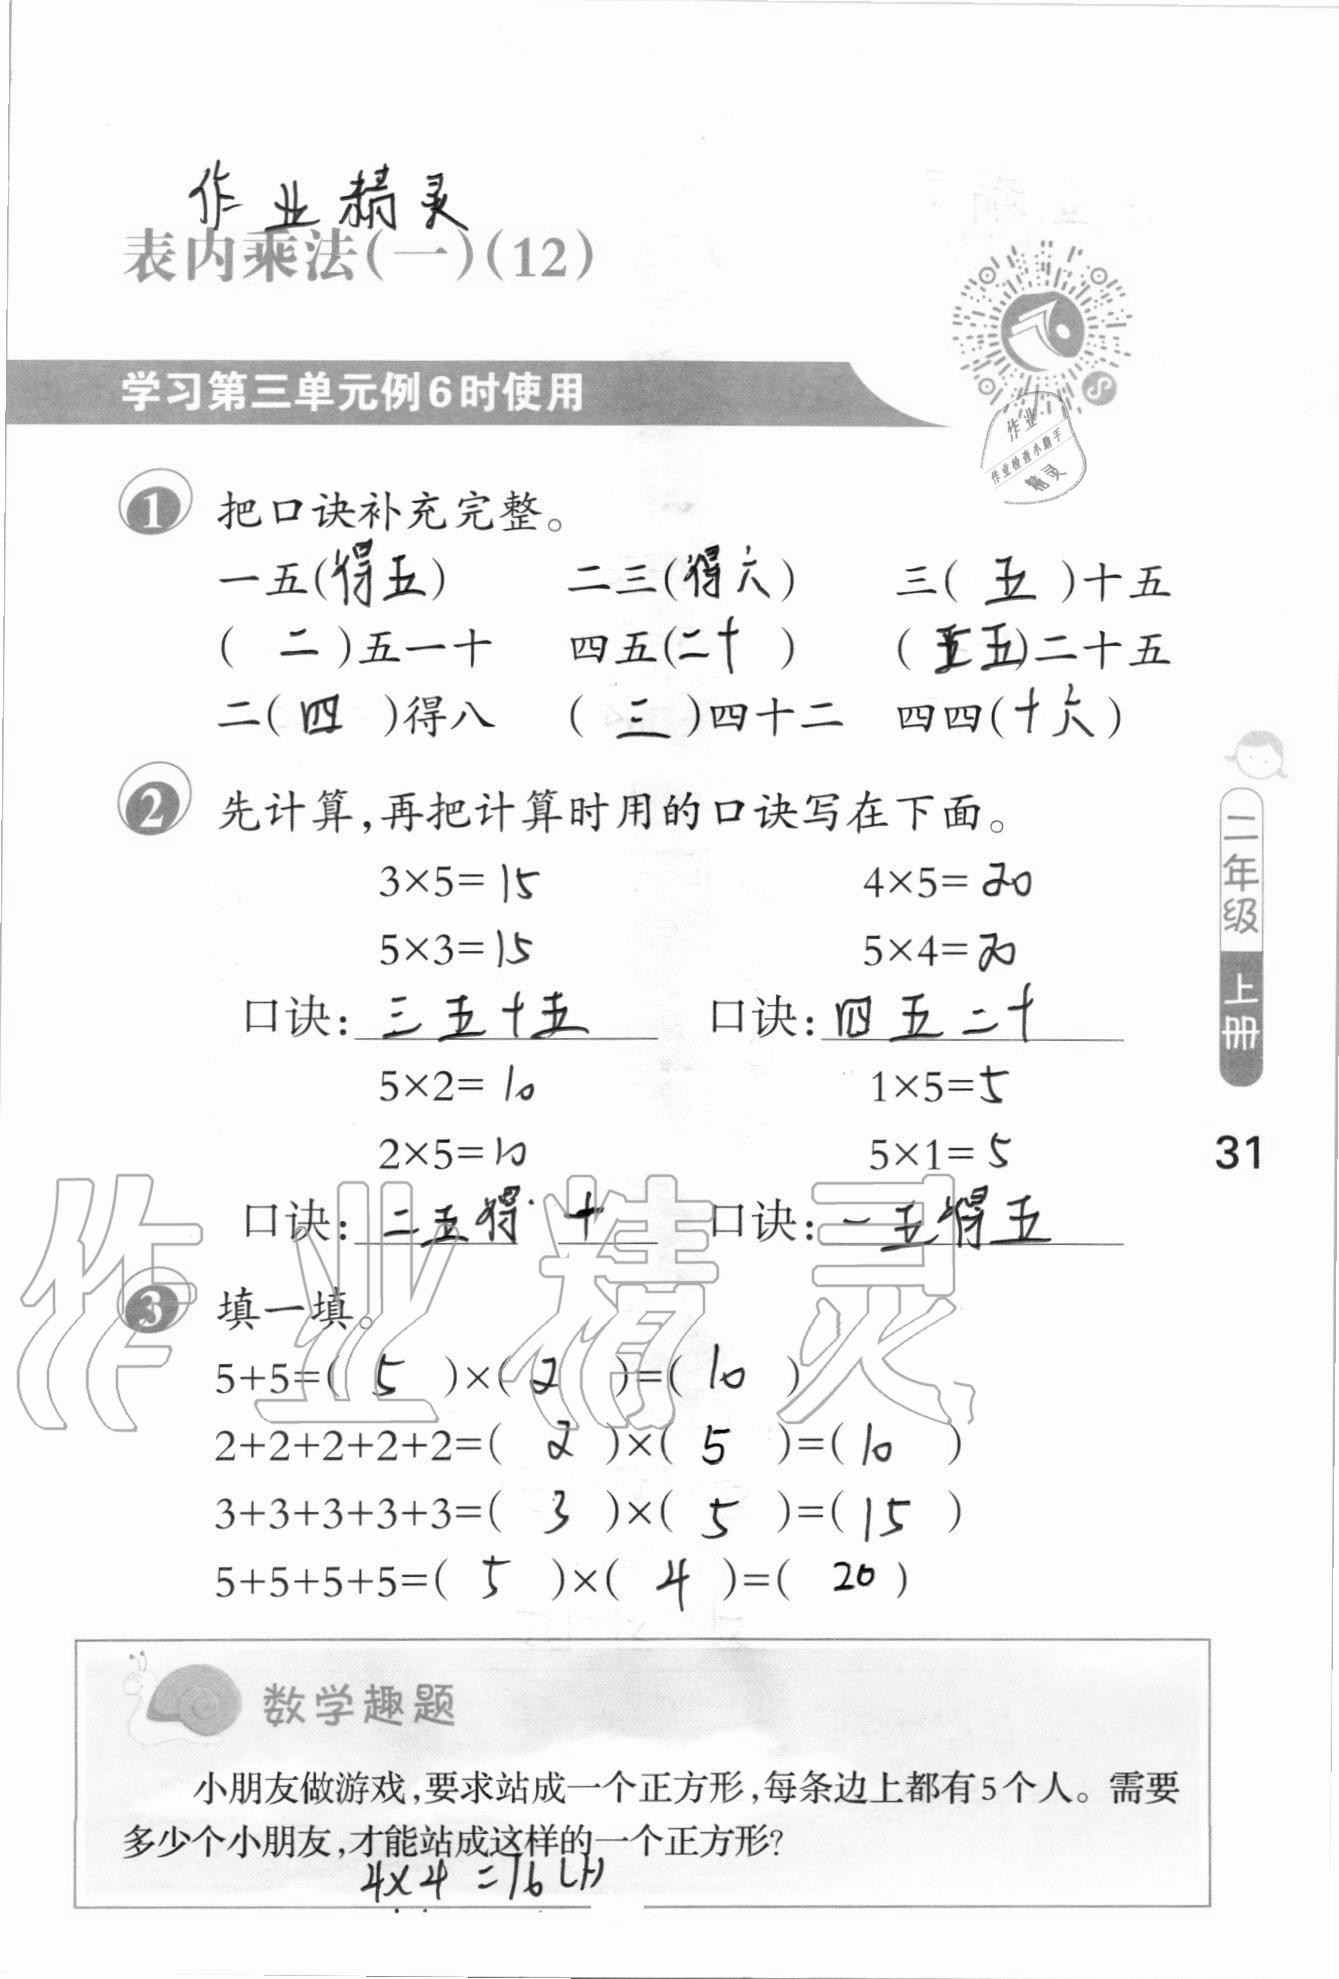 作业精灵
表内乘法(一)(12)
学习第三单元例6时使用
作业
作业检查小助手
精灵
1 把口诀补充完整。
一五(得五) 二三(得六) 三(五)十五
(二)五一十 四五(二十) (五五)二十五
二(四)得八 (三)四十二 四四(十六)
2 先计算,再把计算时用的口诀写在下面。
3×5=15 4×5=20
5×3=15 5×4=20
口诀:三五十五 口诀:四五二十
5×2=10 1×5=5
2×5=10 5×1=5
口诀:二五得十 口诀:一五得五
3 填一填。
5+5=(5)×(2)=(10)
2+2+2+2+2=(2)×(5)=(10)
3+3+3+3+3=(3)×(5)=(15)
5+5+5+5=(5)×(4)=(20)
作业精灵
二年级
上册
31
数学趣题
小朋友做游戏,要求站成一个正方形,每条边上都有5个人。需要
多少个小朋友,才能站成这样的一个正方形?
4×4=16(人)